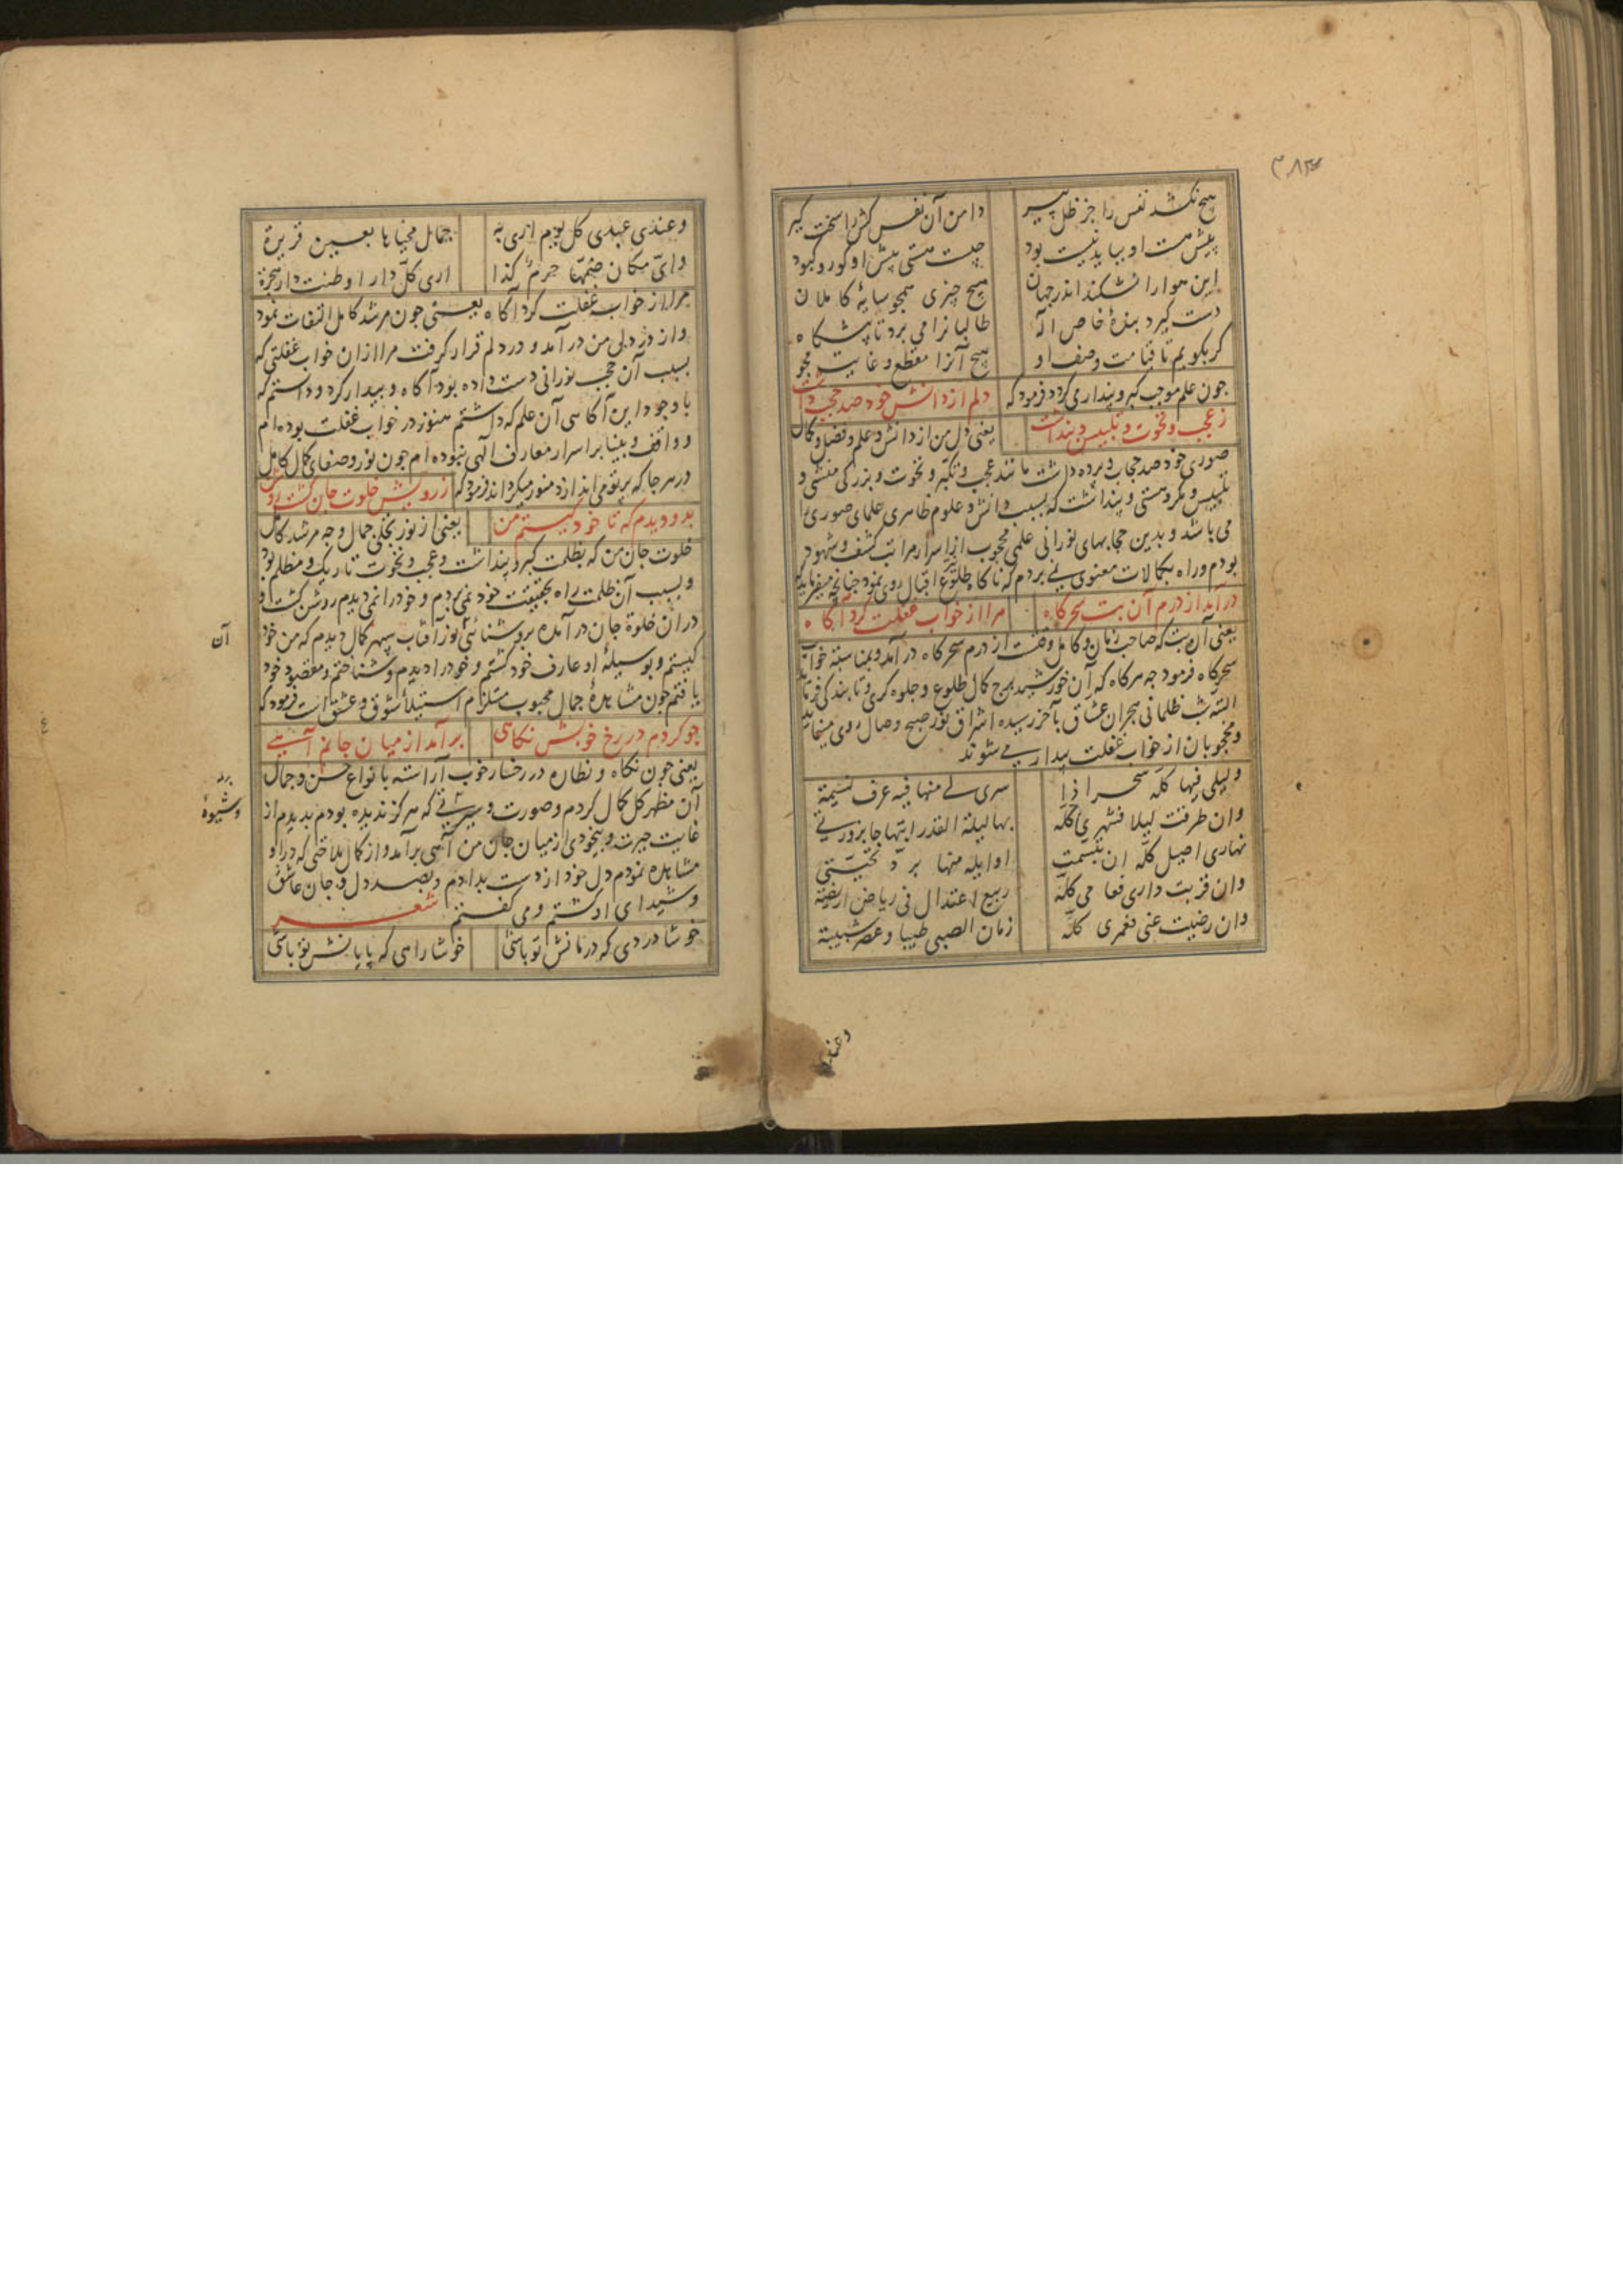 ۳۸۳
هیچ نکشد نفس را جز ظل پیر دامن آن نفس کش را سخت گیر
پیش هست او بباید نیست بود چیست هستی پیش او کور و کبود
این هوا را نشکند اندر جهان هیچ چیزی همچو سایهٔ کاملان
دست گیرد بندهٔ خاص اله طالبانرا می برد تا پیشگاه
کر بکویم تا قیامت وصف او هیچ آنرا مقطع و غایت مجو
چون علم موجب کبر و پنداری کردد فرمود که دلم از دانش خود صد حجب داشت
ز عجب و نخوت و تلبیس و پنداشت یعنی دل من از دانش و علم و فضل و کمال
صوری خود صد حجاب و پرده داشت مانند عجب و تکبر و نخوت و بزرکی منشی و
تلبیس و مکر و هستی و پنداشت که بسبب دانش و علوم ظاهری علمای صوری را
می باشد و بدین حجابهای نورانی علمی محجوب از اسرار مراتب کشف و شهود
بودم و راه بکمالات معنوی نمی بردم که ناکاه طلوع اقبال روی نمود چنانچه میفرماید که
درآمد از درم آن بت سحرکاه مرا از خواب غفلت کرد آکاه
یعنی آن بت که صاحب زمان و کامل وقت است از درم سحرکاه درآمد و بمناسبت خواب
سحرکاه فرمود چه هرکاه که آن خورشید برج کمال طلوع و جلوه کری و تابندکی فرماید
البته شب ظلمانی هجران عشاق بآخر رسیده اشراق نور صبح وصال روی مینماید
و محجوبان از خواب غفلت بیدار می شوند
ولیلی فیها کله سحر اذا سری لی منها فیه عرف نسیمة
وان طرقت لیلا فشهری کله بها لیلة القدر ابتهاجا بزورتی
نهاری اصیل کله ان تنسمت اوایله منها برد تحیتی
وان قربت داری فعامی کله ربیع اعتدال فی ریاض اریضة
وان رضیت عنی فعمری کله زمان الصبی طیبا وعصر شبیبة
وعندی
وعندی عیدی کل یوم اری به جمال محیاها بعین قریرة
وای مکان ضمها حرم کذا اری کل دار اوطنت دار هجرة
مرا از خواب غفلت کرد آکاه یعنی چون مرشد کامل التفات نمود
و از در دل من درآمد و در دلم قرار کرفت مرا ازان خواب غفلتی که
بسبب آن حجب نورانی دست داده بود آکاه و بیدار کرد و دانستم که
با وجود این آکاسی آن علم که داشتم هنوز در خواب غفلت بوده ام
و واقف و بینا بر اسرار معارف الهی نبوده ام چون نور و صفای کمال کامل
در هر جا که پرتو می اندازد منور میکرداند فرمود که ز رویش خلوت جان کشت روشن
بدو دیدم که تا خود کیستم من یعنی از نور تجلی جمال وجه مرشد کامل
خلوت جان من که بظلمت کبر و پنداشت و عجب و نخوت تاریک و مظلم بود
و بسبب آن ظلمت راه بحقیقت خود نمی بردم و خود را نمی دیدم روشن کشت و
دران خلوة جان درآمده بروشنائی نور آفتاب سپهر کمال دیدم که من خود
کیستم و بوسیلهٔ او عارف خود کشتم و خود را دیدم و شناختم و مقصود خود
آن
یافتم چون مشاهدهٔ جمال محبوب مستلزم استیلاء شوق و عشق است فرمود که
چو کردم در رخ خوبش نکاهی برآمد از میان جانم آهی
یعنی چون نکاه و نظاره در رخسار خوب آراسته بانواع حسن و جمال
آن مظهر کل کمال کردم و صورت و سیرتی که هرکز ندیده بودم بدیدم از
برد
و شیوهٔ
غایت حیرت و بیخودی از میان جان من آهی برآمد و از کمال ملاحتی که در او
مشاهده نمودم دل خود از دست بدادم و بصد دل و جان عاشق
و شیدای او کشتم و می کفتم شعر
خوشا دردی که درمانش تو باشی خوشا راهی که پایانش تو باشی